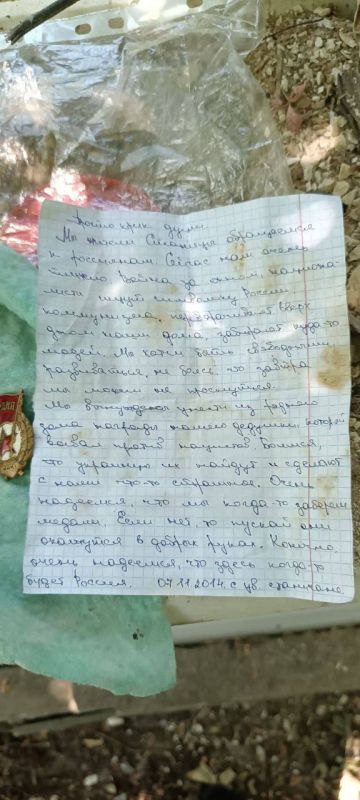 Просто крик души.
Мы жители Станицы обращаемся
к россиянам. Сейчас нам очень
тяжело. Война за окном, национа-
листы ищут символику России,
коммунизма, переворачивают вверх
дном наши дома, забирают куда-то
людей. Мы хотим быть свободными,
развиваться, не боясь что завтра
мы можем не проснуться.
Мы вынуждены унести из родного
дома награды нашего дедушки, который
воевал против нацистов. Боимся,
что украинцы их найдут и сделают
с нами что-то страшное. Очень
надеемся, что мы когда-то заберем
медали. Если нет, то пускай они
окажутся в добрых руках. Конечно
очень надеемся, что здесь когда-то
будет Россия. 07.11.2014. с ув. станичане.